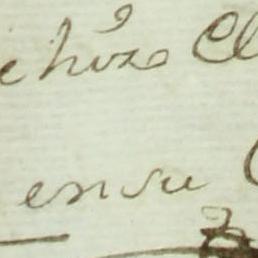 e hizo Cl
en su C